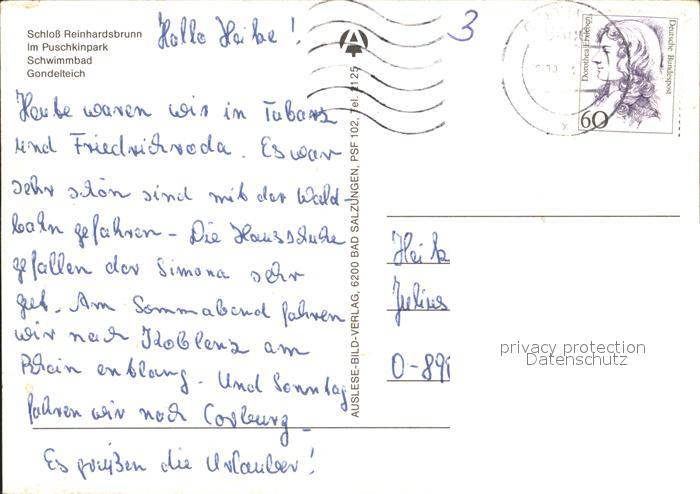 Schloß Reinhardsbrunn
Im Puschkinpark
Schwimmbad
Gondelteich
Hallo Heike!
Heute waren wir in Tabarz
und Friedrichroda. Es war
sehr schön sind mit der Wald-
bahn gefahren - Die Hausschuhe
gefallen der Simona sehr
gut. Am Sonnabend fahren
wir nach Koblenz am
Rhein entlang. Und Sonntag
fahren wir nach Coburg -
Es grüßen die Urlauber!
AUSLESE-BILD-VERLAG, 6200 BAD SALZUNGEN, PSF 102, Tel. 2125
3
Deutsche Bundespost
Dorothea Erxleben
60
Heik
Julius
O-89
privacy protection
Datenschutz